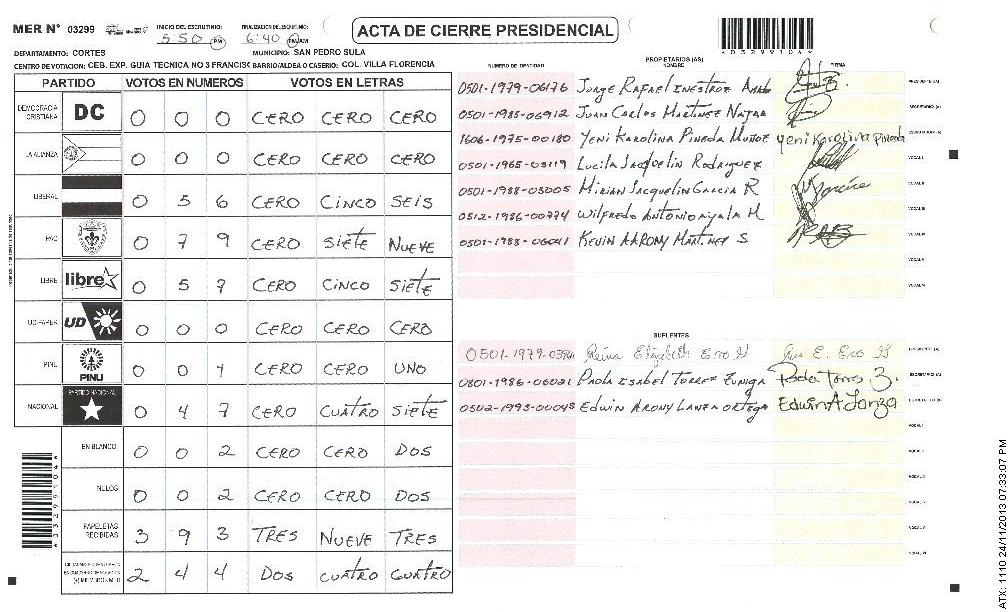 MER N° 03299
INICIO DEL ESCRUTINIO: 5:50 PM
FINALIZACION DEL ESCRUTINIO: 6:40 PM
ACTA DE CIERRE PRESIDENCIAL
DEPARTAMENTO: CORTES MUNICIPIO: SAN PEDRO SULA
CENTRO DE VOTACION: CEB. EXP. GUIA TECNICA NO 3 FRANCISC BARRIO/ALDEA O CASERIO: COL. VILLA FLORENCIA
PARTIDO VOTOS EN NUMEROS VOTOS EN LETRAS
DEMOCRACIA CRISTIANA DC 0 0 0 CERO CERO CERO
LA ALIANZA 0 0 0 CERO CERO CERO
LIBERAL 0 5 6 CERO CINCO SEIS
PAC 0 7 9 CERO SIETE NUEVE
LIBRE libre 0 5 7 CERO CINCO SIETE
UD-FAPER UD 0 0 0 CERO CERO CERO
PINU PINU 0 0 1 CERO CERO UNO
NACIONAL PARTIDO NACIONAL 0 4 7 CERO CUATRO SIETE
EN BLANCO 0 0 2 CERO CERO DOS
NULOS 0 0 2 CERO CERO DOS
PAPELETAS RECIBIDAS 3 9 3 TRES NUEVE TRES
2 4 4 DOS CUATRO CUATRO
PROPIETARIOS (AS)
NUMERO DE IDENTIDAD NOMBRE FIRMA
0501-1979-06176 Jorge Rafael Inestroz PRESIDENTE (A)
0501-1985-06912 Juan Carlos Martinez Najar SECRETARIO (A)
1606-1975-00180 Yeni Karolina Pineda Muñoz Yeni Karolina Pineda ESCRUTADOR (A)
0501-1965-03119 Lucila Jacquelin Rodriguez VOCAL I
0501-1988-03005 Mirian Jacquelin Garcia R VOCAL II
0512-1986-00774 Wilfredo Antonio Ayala M VOCAL III
0501-1988-06041 Kevin Aarony Martinez S VOCAL IV
VOCAL V
VOCAL VI
SUPLENTES
Reina Elizabeth PRESIDENTE (A)
0801-1986-06021 Paola Isabel Torrez Zuniga Paola Torres Z. SECRETARIO (A)
0502-1993-00048 Edwin Arony Lanza Ortega Edwin A Lanza ESCRUTADOR (A)
VOCAL I
VOCAL II
VOCAL III
VOCAL IV
VOCAL V
VOCAL VI
ATX: 1110 24/11/2013 07:33:07 PM